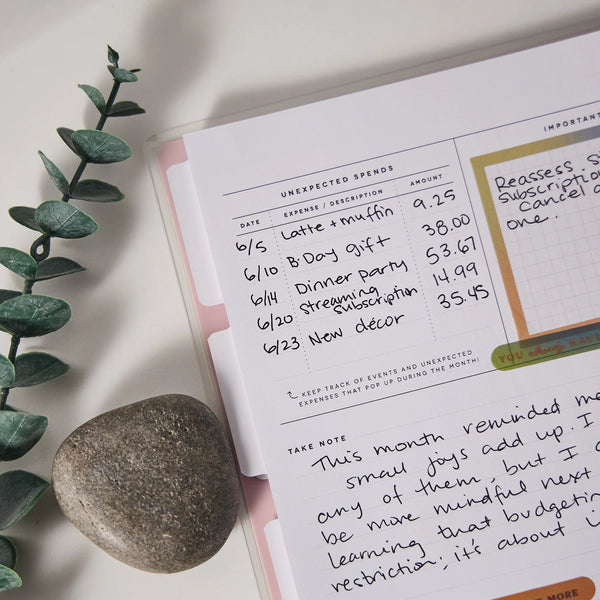 UNEXPECTED SPENDS
DATE EXPENSE / DESCRIPTION AMOUNT
6/5 Latte + muffin 9.25
6/10 B-Day gift 38.00
6/14 Dinner party 53.67
6/20 Streaming subscription 14.99
6/23 New décor 35.45
KEEP TRACK OF EVENTS AND UNEXPECTED
EXPENSES THAT POP UP DURING THE MONTH!
IMPORTANT
Reassess
subscription
cancel
one.
YOU always HAVE
TAKE NOTE
This month reminded me
small joys add up. I
any of them, but I
be more mindful next
learning that budgeting
restriction; it's about
MORE